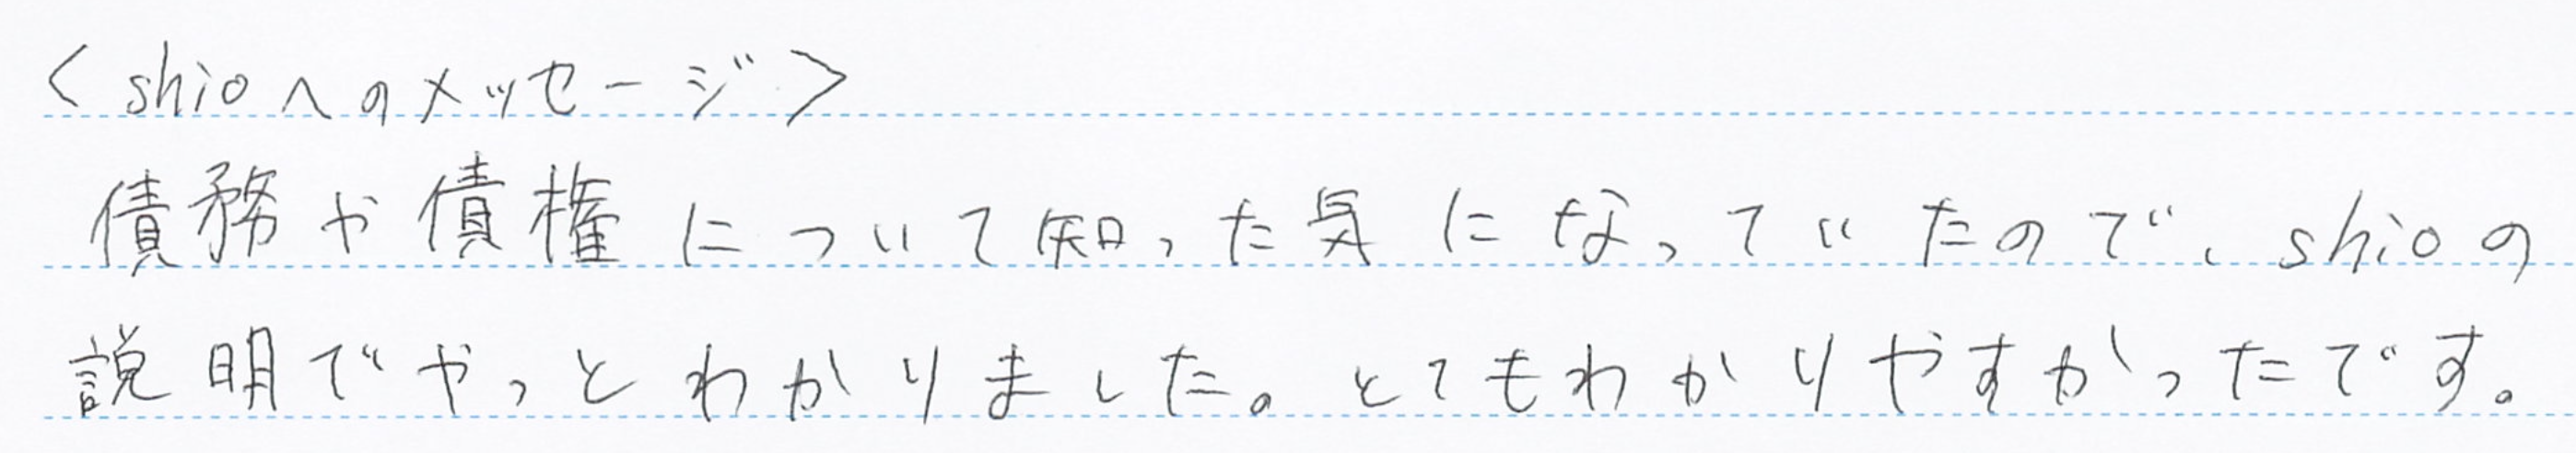 <shioへのメッセージ>
債務や債権について知った気になっていたので、shioの
説明でやっとわかりました。とてもわかりやすかったです。